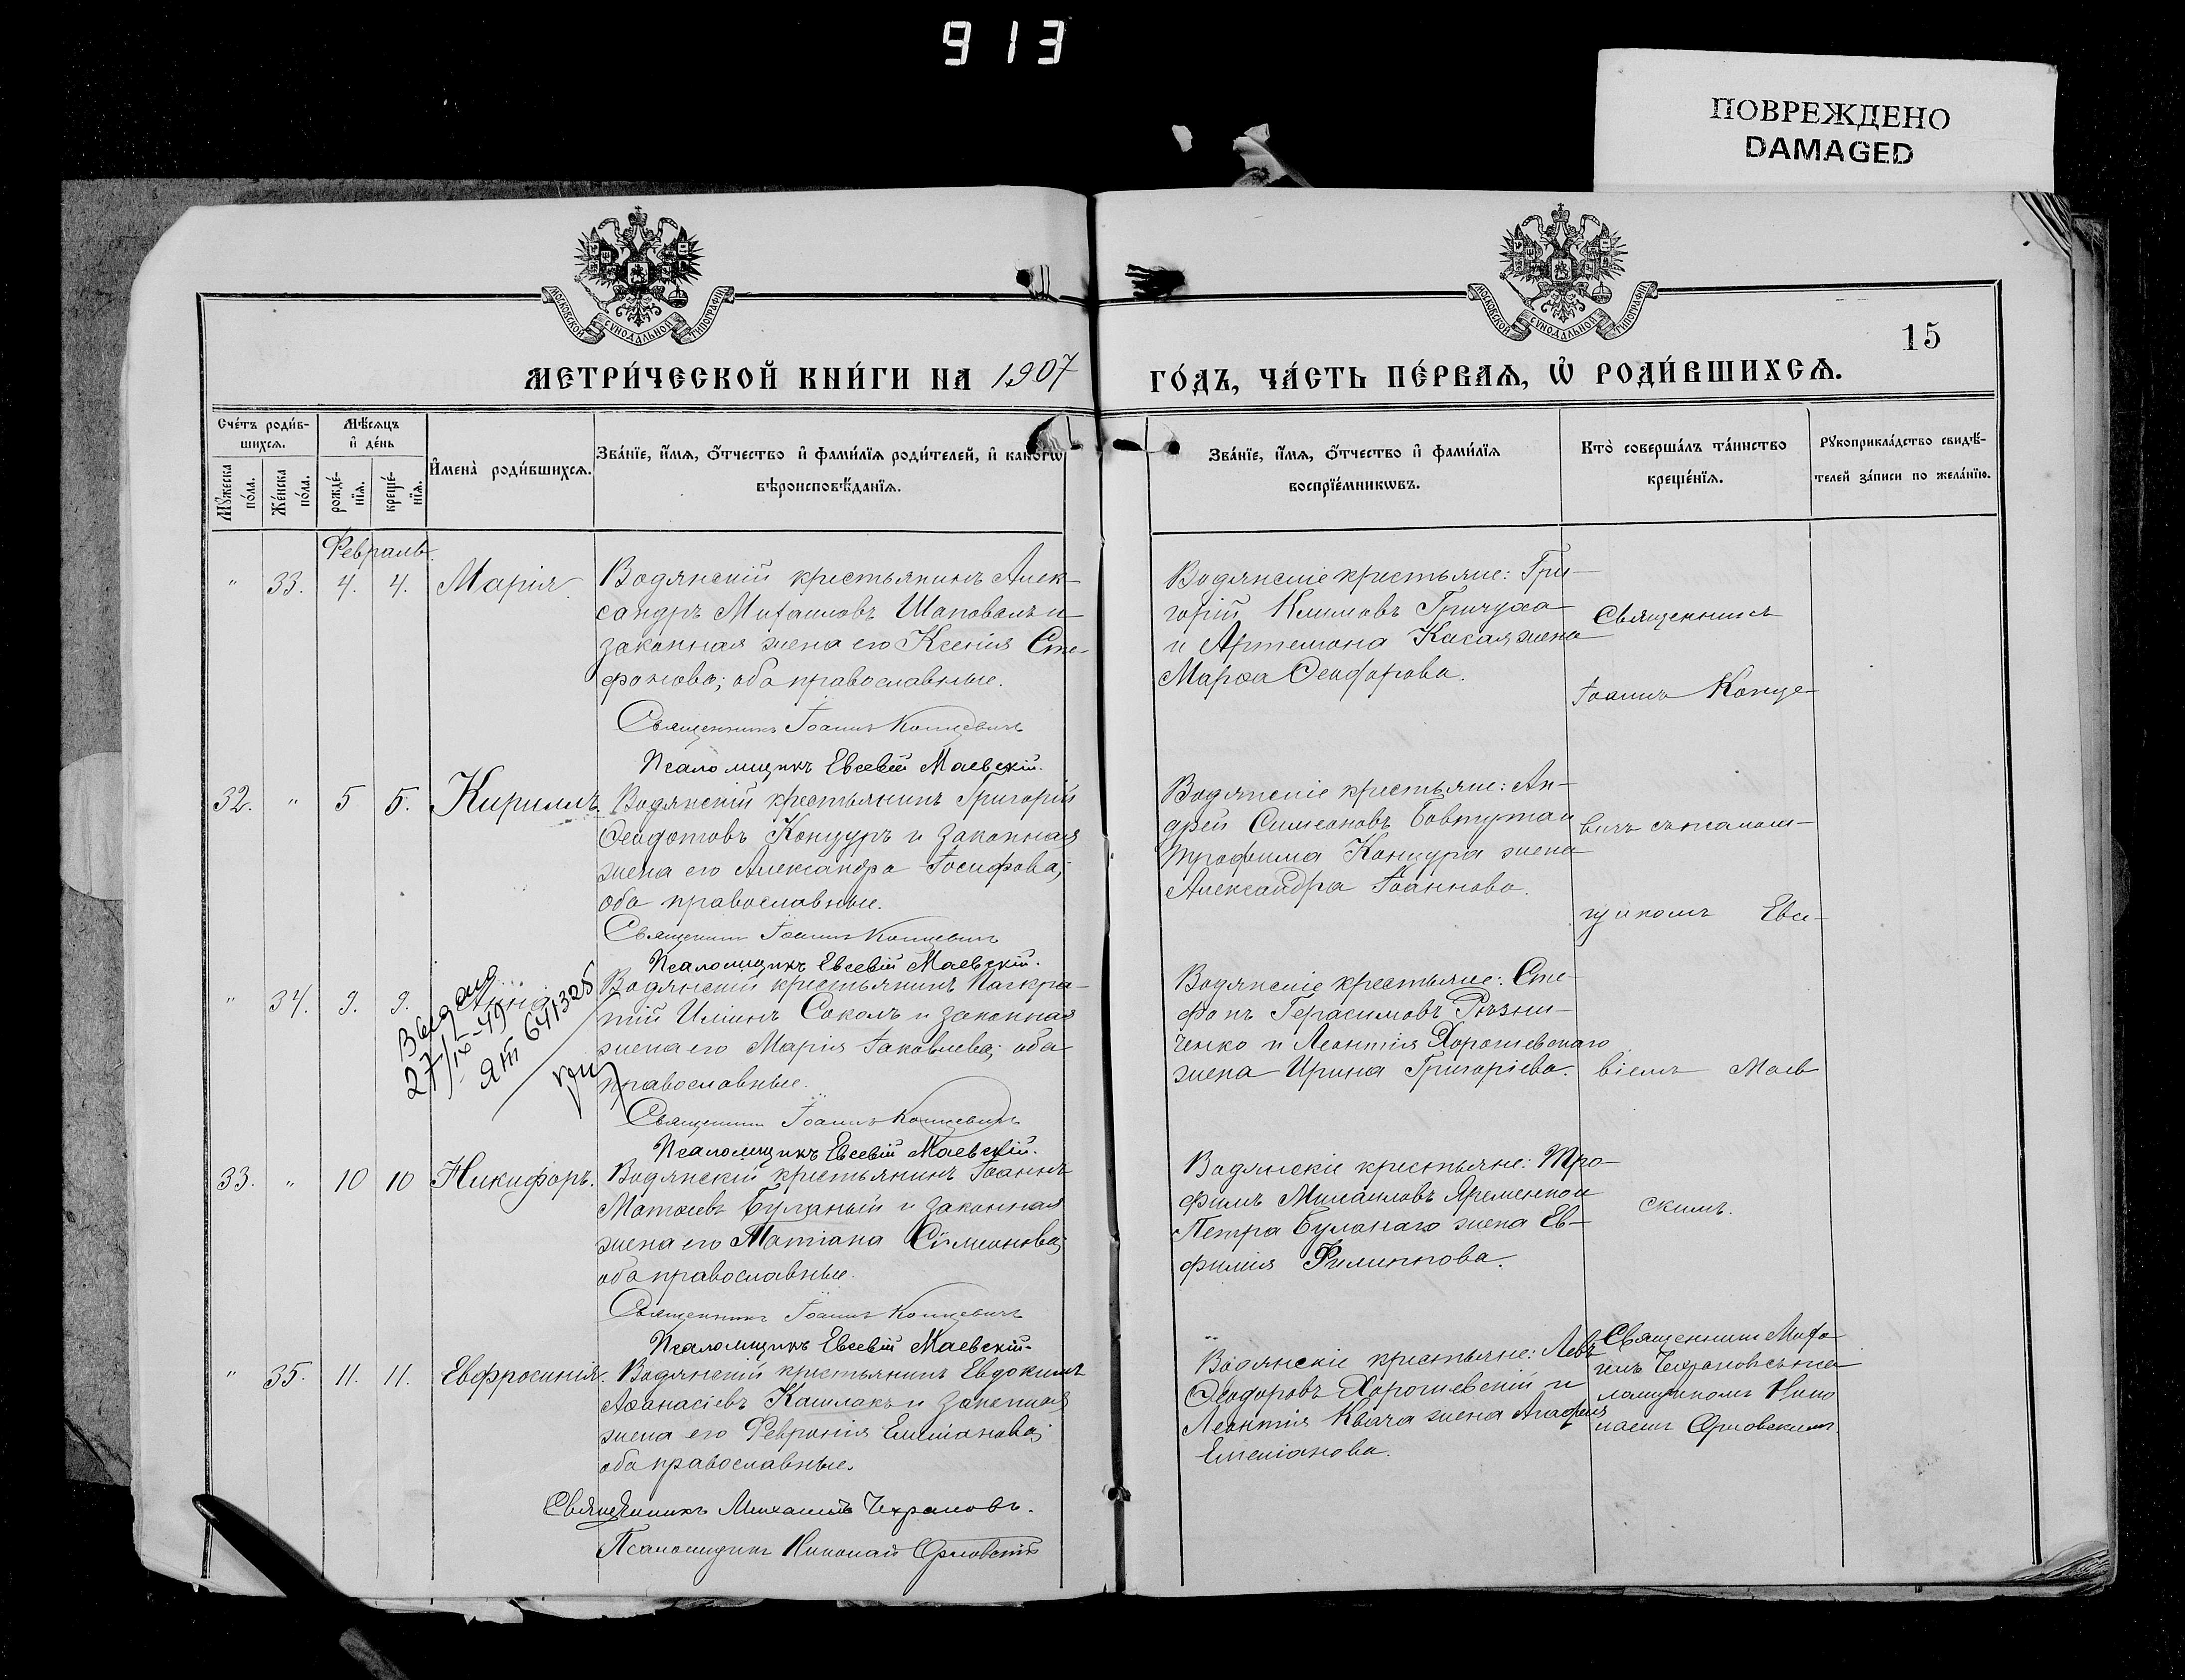 913
ПОВРЕЖДЕНО
DAMAGED
МОСКОВСКОЙ СѴНОДАЛЬНОЙ ТИПОГРАФІИ
МОСКОВСКОЙ СѴНОДАЛЬНОЙ ТИПОГРАФІИ
15
МЕТРИ́ЧЕСКОЙ КНИ́ГИ НА 1907
ГО́ДЪ, ЧА́СТЬ ПЕ́РВАѦ, Ѡ҆ РОДИ́ВШИХСѦ.
Сче́тъ роди́в-
шихсѧ.
Мꙋ́жеска по́ла.
Же́нска по́ла.
Мѣ́сѧцъ
и҆ де́нь
рожде́-
нїѧ.
креще́-
нїѧ.
И҆мена̀ роди́вшихсѧ.
Зва́нїе, и҆́мѧ, ѻ҆́тчество и҆ фами́лїѧ роди́телей, и҆ како́гѡ
вѣроисповѣ́данїѧ.
Зва́нїе, и҆́мѧ, ѻ҆́тчество и҆ фами́лїѧ
воспрїе́мникѡвъ.
Кто̀ соверша́лъ та́инство
креще́нїѧ.
Рꙋкоприкла́дство свидѣ́-
телей за́писи по жела́нїю.
Февраль.
" 33. 4. 4. Марія
Водянскій крестьянинъ Алек-
сандръ Михаиловъ Шаповалъ и
законная жена его Ксенія Сте-
фанова; оба православные.
Священникъ Іоаннъ Концевичъ
Псаломщикъ Евсевій Маевскій.
Водянскіе крестьяне: Гри-
горій Климовъ Гричуха
и Артемона Касая жена
Марѳа Ѳеодорова.
Священникъ
Іоаннъ Конце-
32. " 5 5. Кириллъ.
Водянскій крестьянинъ Григорій
Ѳеодотовъ Концуръ и законная
жена его Александра Іосифова;
оба православные.
Священникъ Іоаннъ Концевичъ
Псаломщикъ Евсевій Маевскій.
Водянскіе крестьяне: Ан-
дрей Симеоновъ Бовтута и
Трофима Концура жена
Александра Іоаннова.
вичъ съ псалом-
щикомъ Евсе-
" 34. 9. 9. Анна
Выдано
27/IX-49
ЯП 641325
Водянскій крестьянинъ Панкра-
тій Иліинъ Соколъ и законная
жена его Марія Іаковлева; оба
православные.
Священникъ Іоаннъ Концевичъ
Псаломщикъ Евсевій Маевскій.
Водянскіе крестьяне: Сте-
фанъ Герасимовъ Рѣзни-
ченко и Леонтія Хорошевскаго
жена Ирина Григоріева.
віемъ Маев
33. " 10 10 Никифоръ.
Водянскій крестьянинъ Іоаннъ
Матѳіевъ Буланый и законная
жена его Татіана Симеонова;
оба православные.
Священникъ Іоаннъ Концевичъ
Псаломщикъ Евсевій Маевскій.
Водянскіе крестьяне: Тро-
фимъ Михаиловъ Яременко и
Петра Буланаго жена Ев-
фимія Филиппова.
скимъ.
" 35. 11. 11. Евфросинія.
Водянскій крестьянинъ Евдокимъ
Аѳанасіевъ Кашлакъ и законная
жена его Февронія Емеліанова;
оба православные.
Священникъ Михаилъ Чехрановъ.
Псаломщикъ Николай Орловскій
Водянскіе крестьяне: Левъ
Ѳеодоровъ Хорошевскій и
Леонтія Квача жена Агафія
Емеліанова.
Священникъ Миха-
илъ Чехрановъ съ пса
ломщикомъ Нико
лаемъ Орловскимъ.